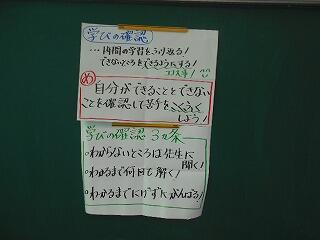 学びの確認
…1年間の学習をふり返る!
できないところをできるようにする!
コレ大事!
め
自分ができることとできない
ことを確認して苦手をこくふく
しよう!
学びの確認 3ヵ条
○わからないところは先生に
聞く!
○わかるまで何回も解く!
○わかるまでにげずにがんばる!